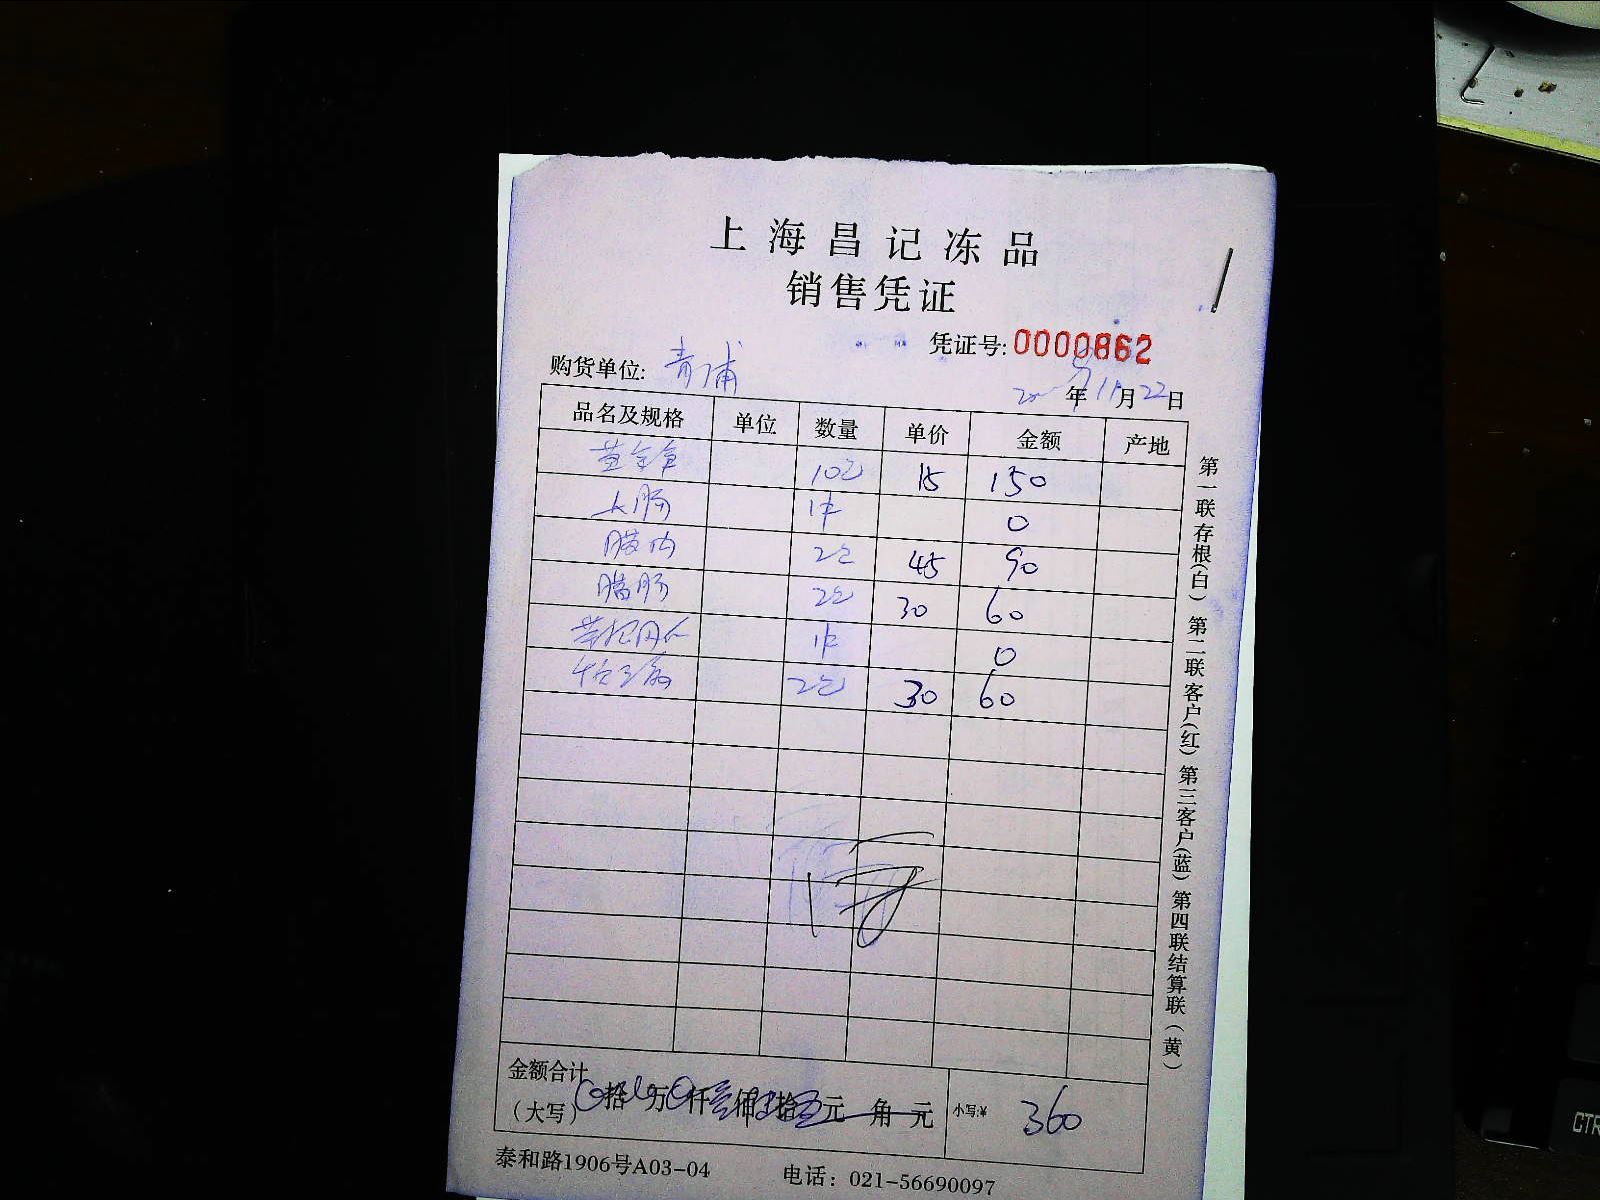 上海昌记冻品
销售凭证
凭证号:0000862
购货单位: 青浦
年11月22日
品名及规格 单位 数量 单价 金额 产地
10包 15 150
大肠 1件 0
2包 45 90
腊肠 2包 30 60
1件 0
2包 30 60
金额合计
(大写) 拾 万 仟 佰 拾 元 角 元 小写:¥ 360
泰和路1906号A03-04 电话: 021-56690097
第一联存根(白) 第二联客户(红) 第三客户(蓝) 第四联结算联(黄)
CTR